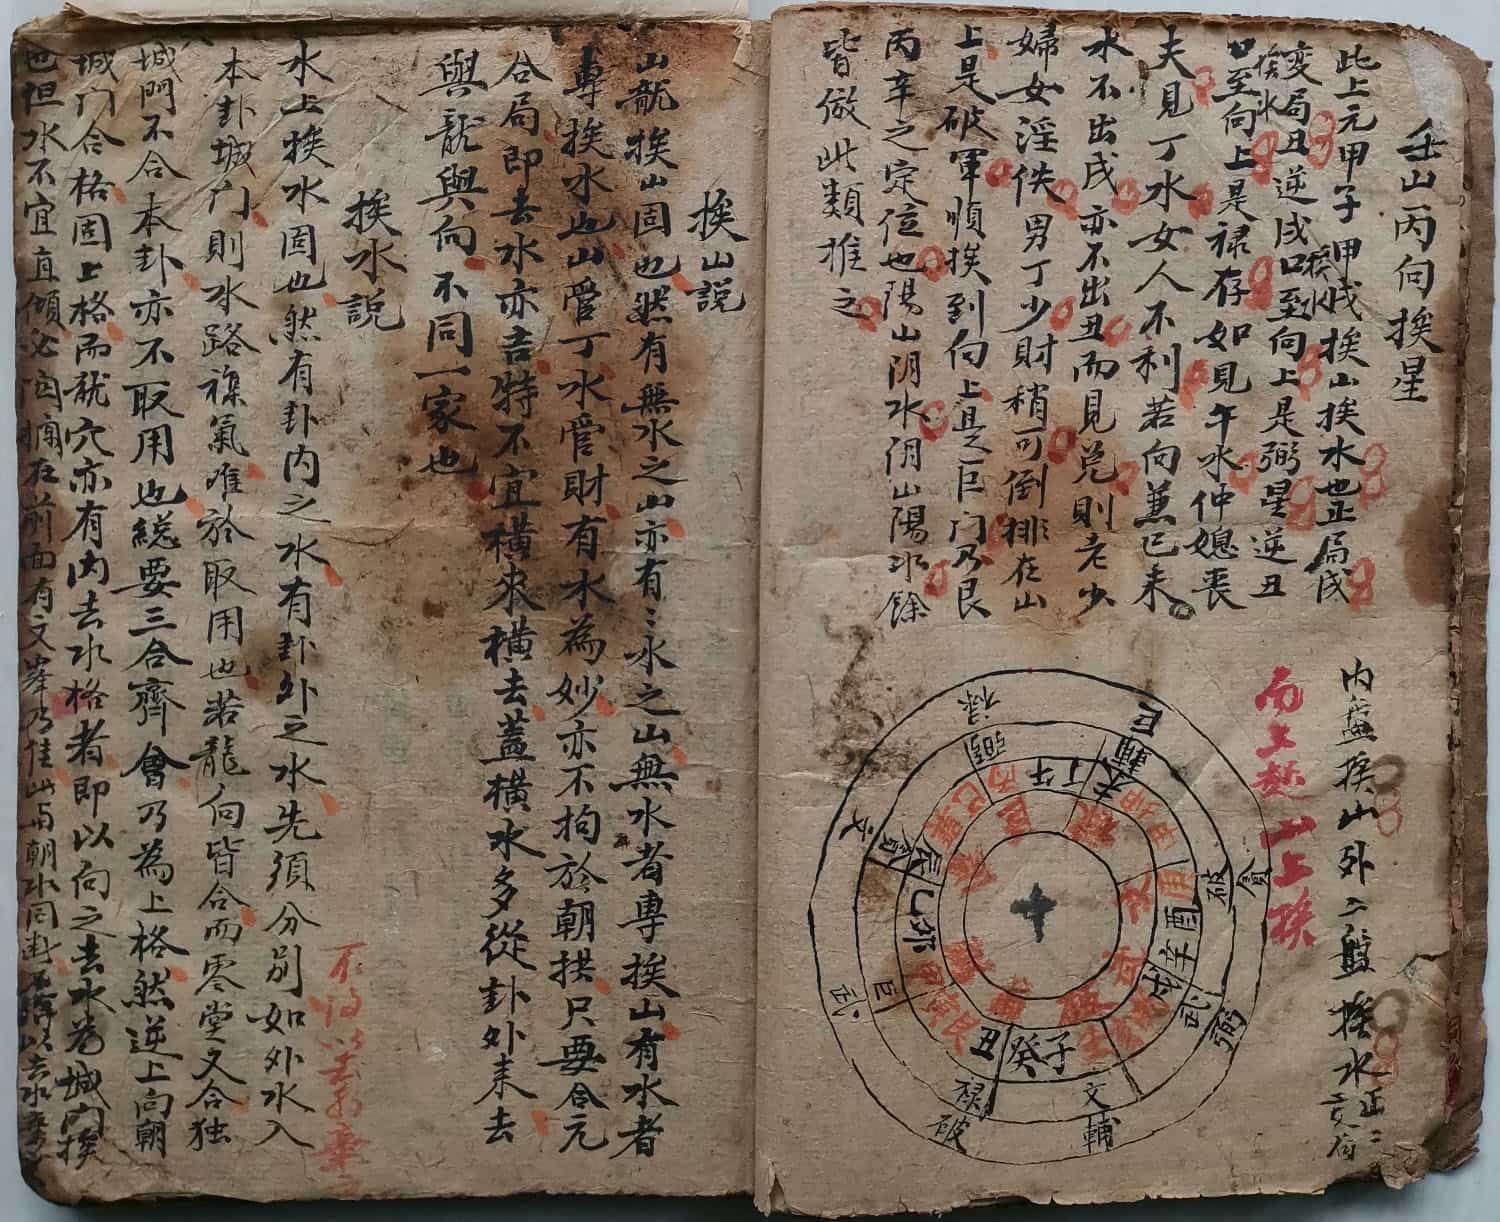 壬山丙向挨星
此上元甲子甲戌挨山挨水也正局戌
挨水
变局丑逆戌口至向上是弼星逆丑
挨水
口至向上是禄存如見午水仲媳丧
夫見丁水女人不利若向兼巳未
水不出戌亦不出丑而見兌則老少
婦女淫佚男丁少財稍可倒排在山
上是破軍順挨到向上是巨门乃艮
丙辛之定位也陽山阴水阴山陽水餘
皆倣此類推之
内盤挨山外二盤挨水
向上起山上挨
禄
弼
巳
輔
丁午
文
貪
辰
乙卯
巨
武
破
貪
酉
辛
武
弼
丑
癸子
禄
破
文
輔
挨山説
山龍挨山固也然有無水之山亦有々水之山無水者專挨山有水者
專挨水也山管丁水管財有水為妙亦不拘於朝拱只要合元
合局即去水亦吉特不宜橫來橫去蓋橫水多從卦外来去
與龍與向不同一家也
挨水説
水上挨水固也然有卦内之水有卦外之水先須分別如外水入
本卦城门則水路襍氣难於取用也若龍向皆合而零堂又合独
城門不合本卦亦不取用也緫要三合齊會乃為上格然逆上向朝
城门合格固上格而龍穴亦有内去水格者即以向之去水為城门挨
也但水不宜直傾必因橫在前面有文峯乃佳此与朝水同断